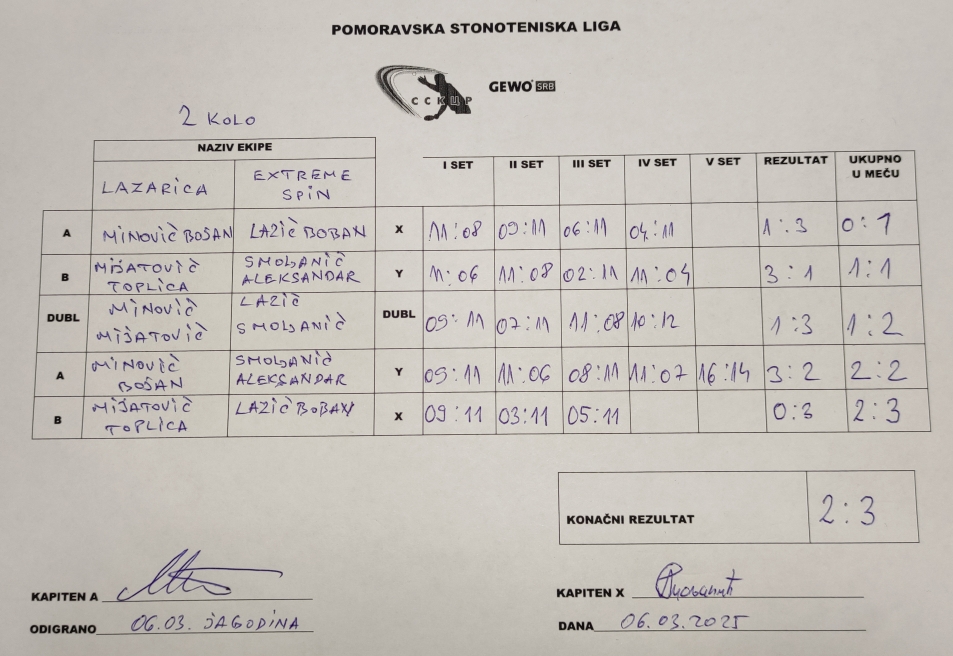 POMORAVSKA STONOTENISKA LIGA
ССКЦР
GEWO SRB
2 KOLO
NAZIV EKIPE
I SET II SET III SET IV SET V SET REZULTAT UKUPNO U MEČU
LAZARICA EXTREME SPIN
A MINOVIĆ BOŠAN LAZIĆ BOBAN X 11:08 09:11 06:11 04:11 1:3 0:1
B MIJATOVIĆ TOPLICA SMOLJANIĆ ALEKSANDAR Y 11:06 11:08 02:11 11:04 3:1 1:1
DUBL MINOVIĆ MIJATOVIĆ LAZIĆ SMOLJANIĆ DUBL 09:11 07:11 11:08 10:12 1:3 1:2
A MINOVIĆ BOŠAN SMOLJANIĆ ALEKSANDAR Y 09:11 11:06 08:11 11:07 16:14 3:2 2:2
B MIJATOVIĆ TOPLICA LAZIĆ BOBAN X 09:11 03:11 05:11 0:3 2:3
KONAČNI REZULTAT 2:3
KAPITEN A
KAPITEN X
ODIGRANO 06.03. JAGODINA
DANA 06.03.2025